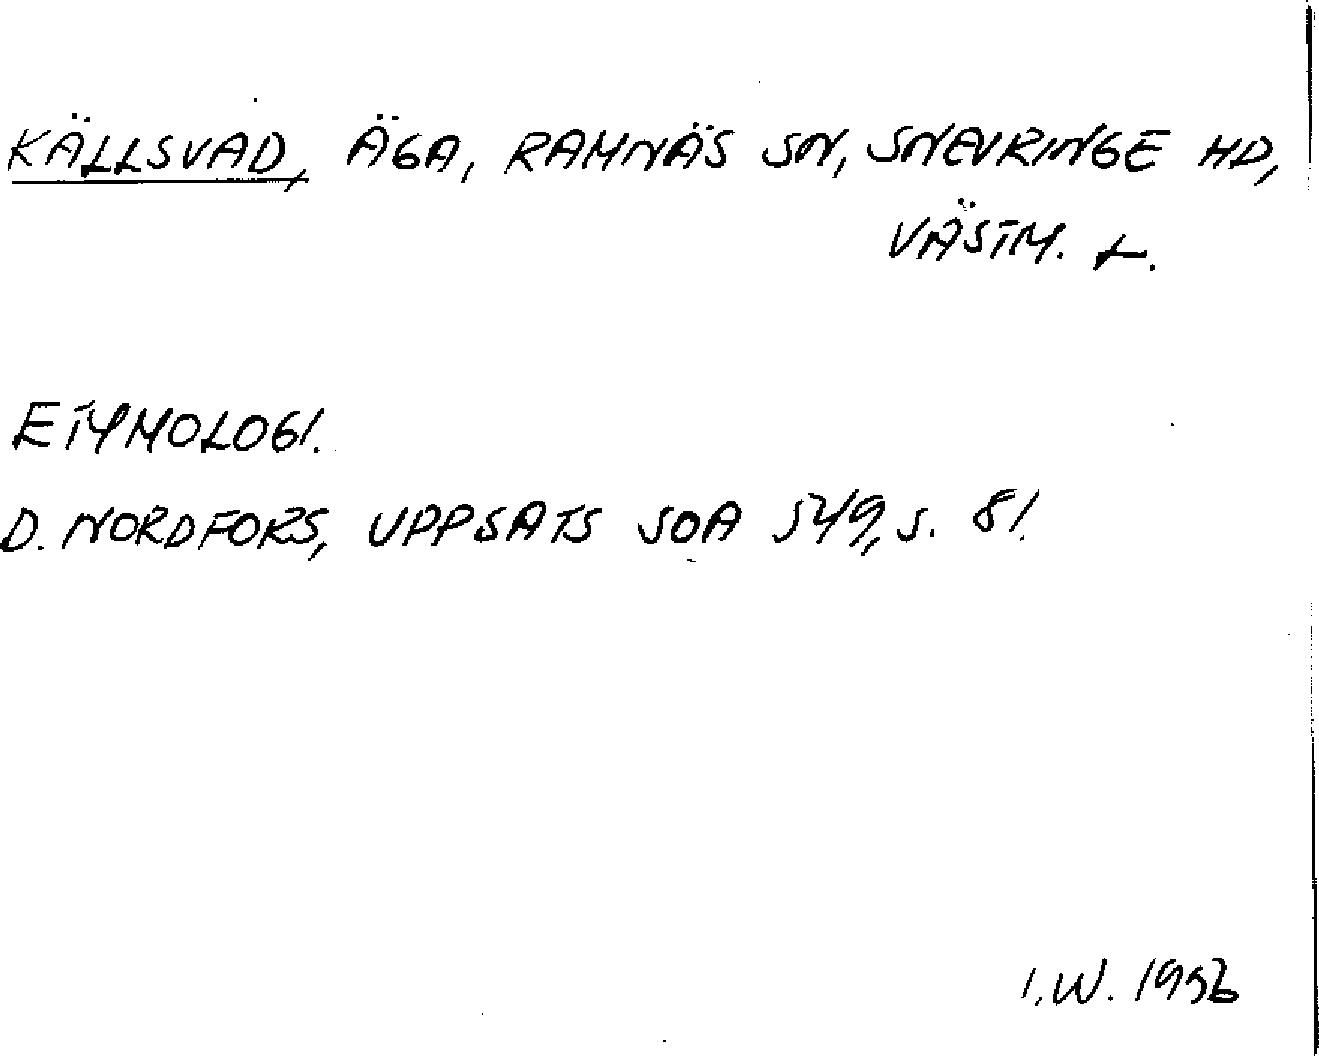 KÄLLSVAD, ÄGA, RAMNÄS SN, SNEVRINGE HD,
VÄSTM. L.
ETYMOLOGI.
D. NORDFORS, UPPSATS SOA 549, S. 81.
I.W. 1956